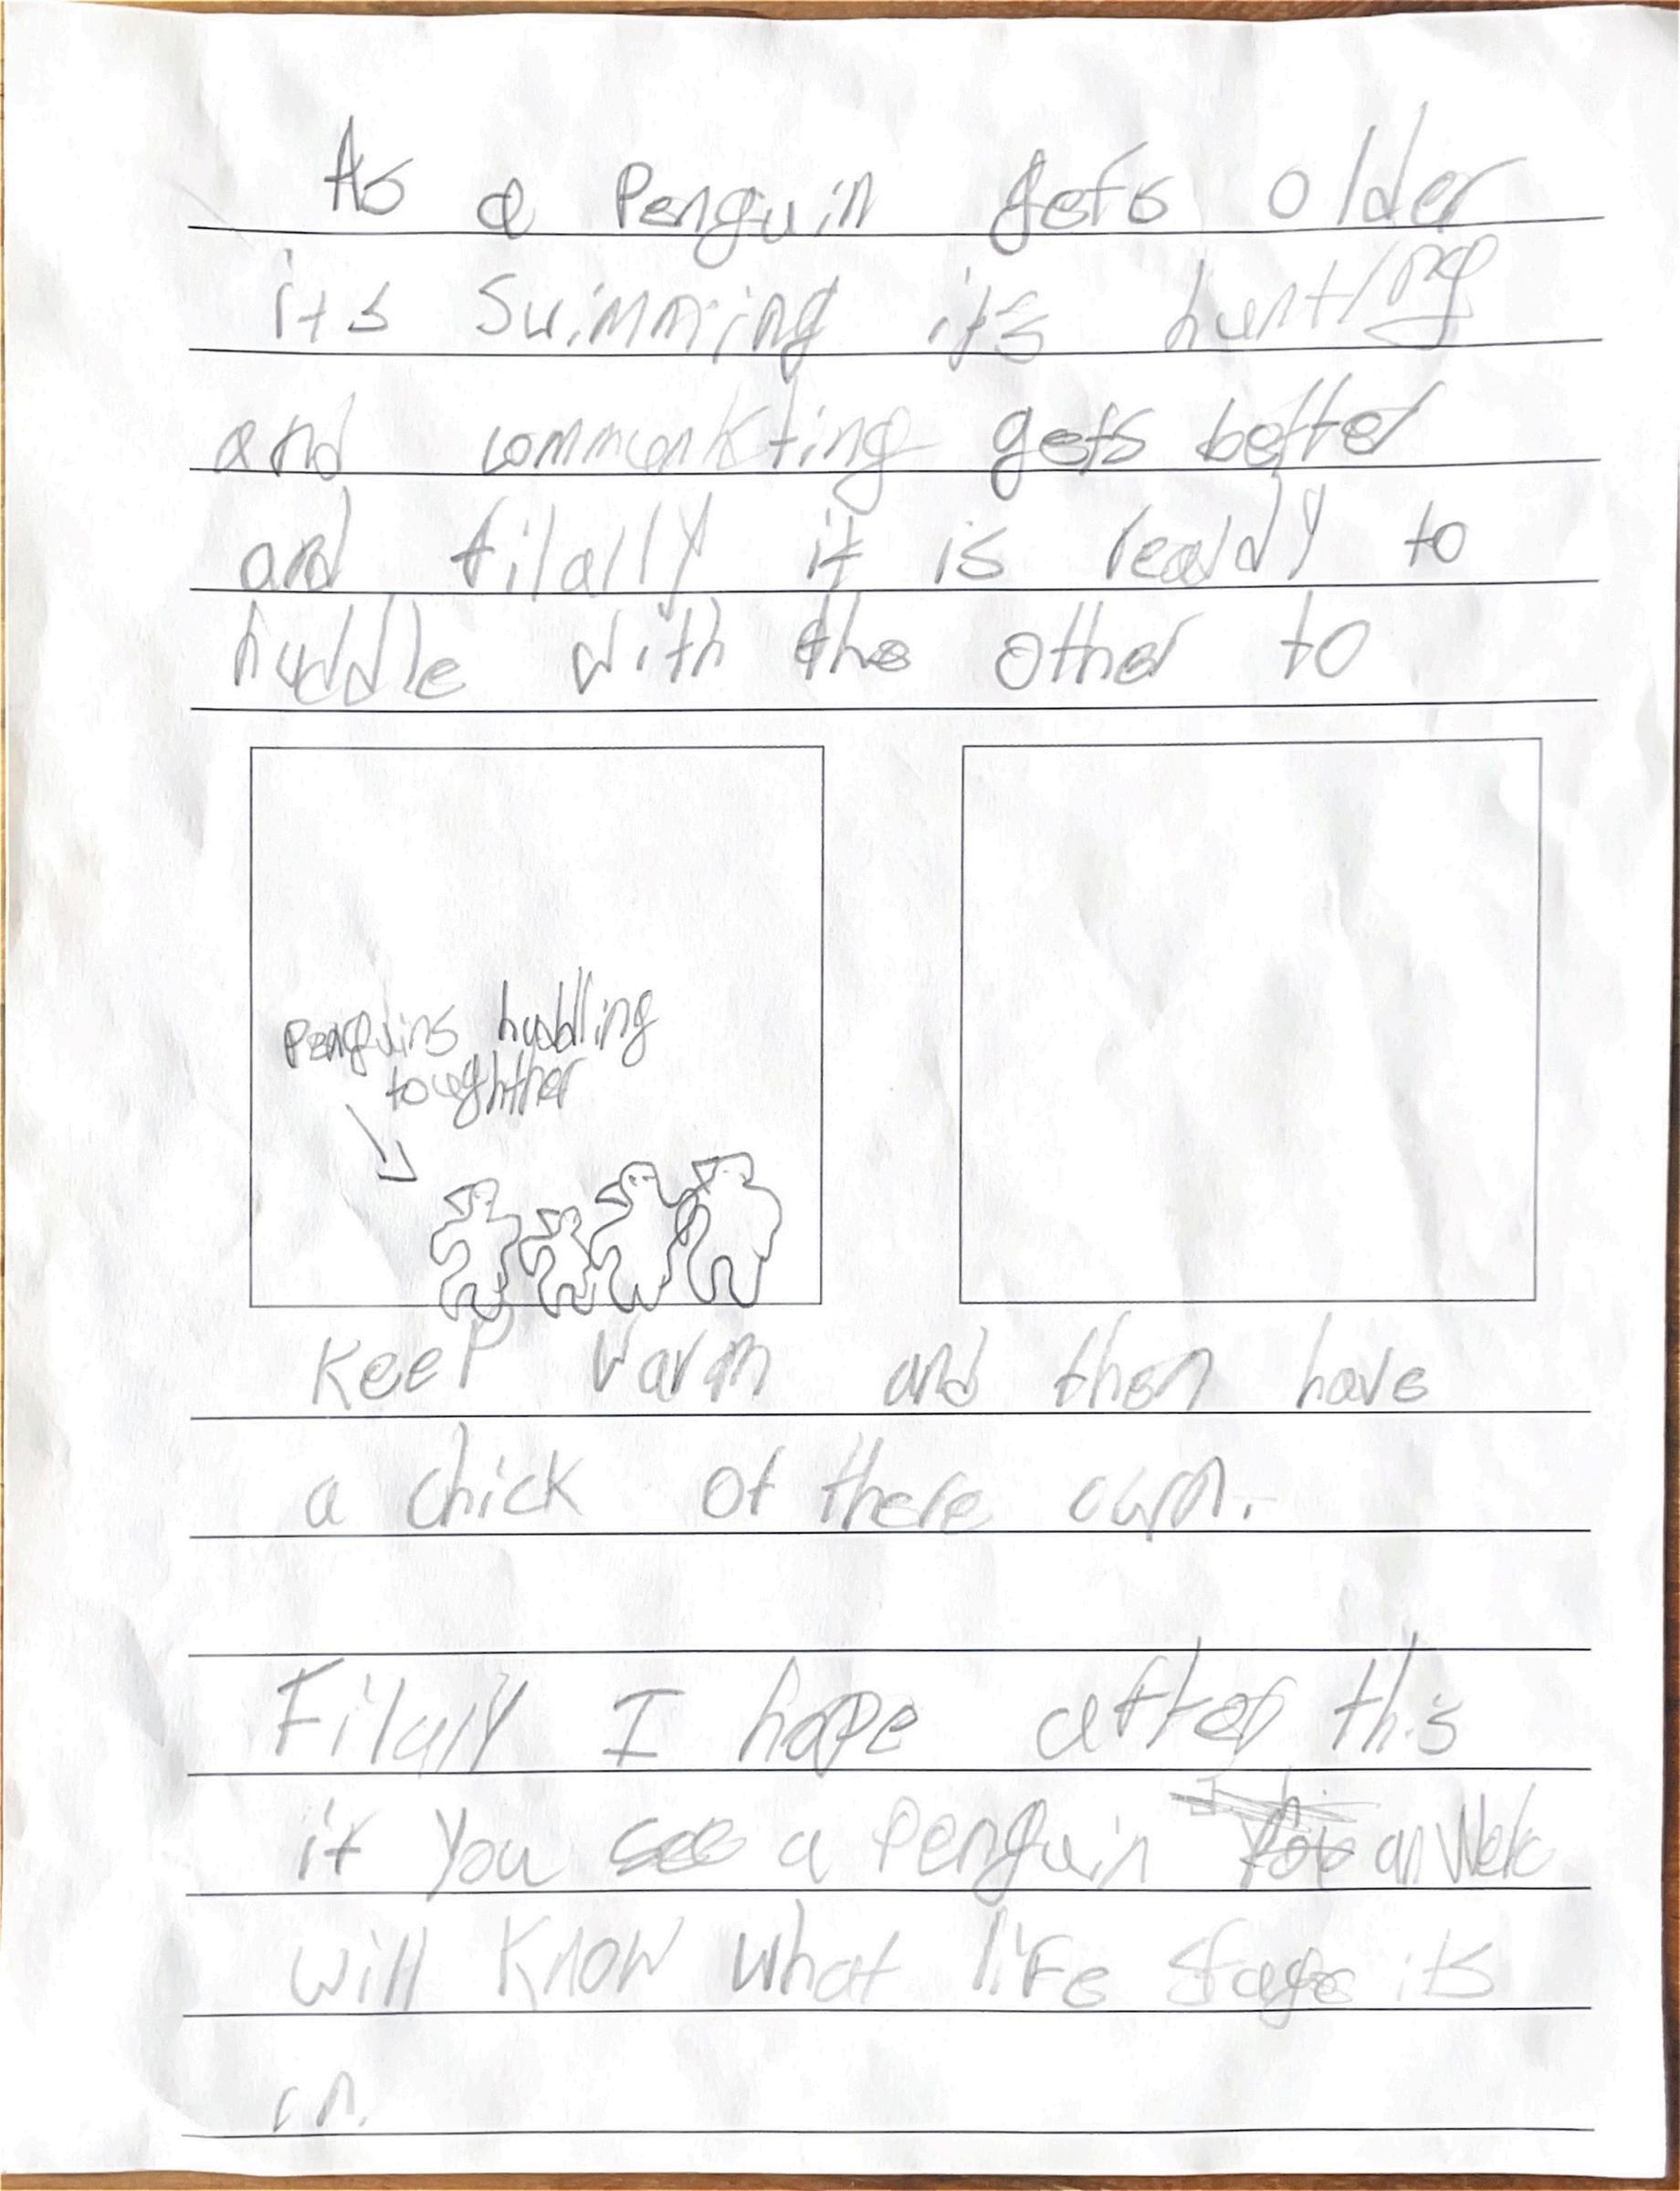 As a Penguin gets older
its swimming its hunting
and commenkting gets better
and filally it is readdy to
huddle with the other to
Penguins huddling
toughther
Keep Warm and then have
a chick of there own.
Filally I hope after this
if you see a Penguin
will Know what life stage its
in.